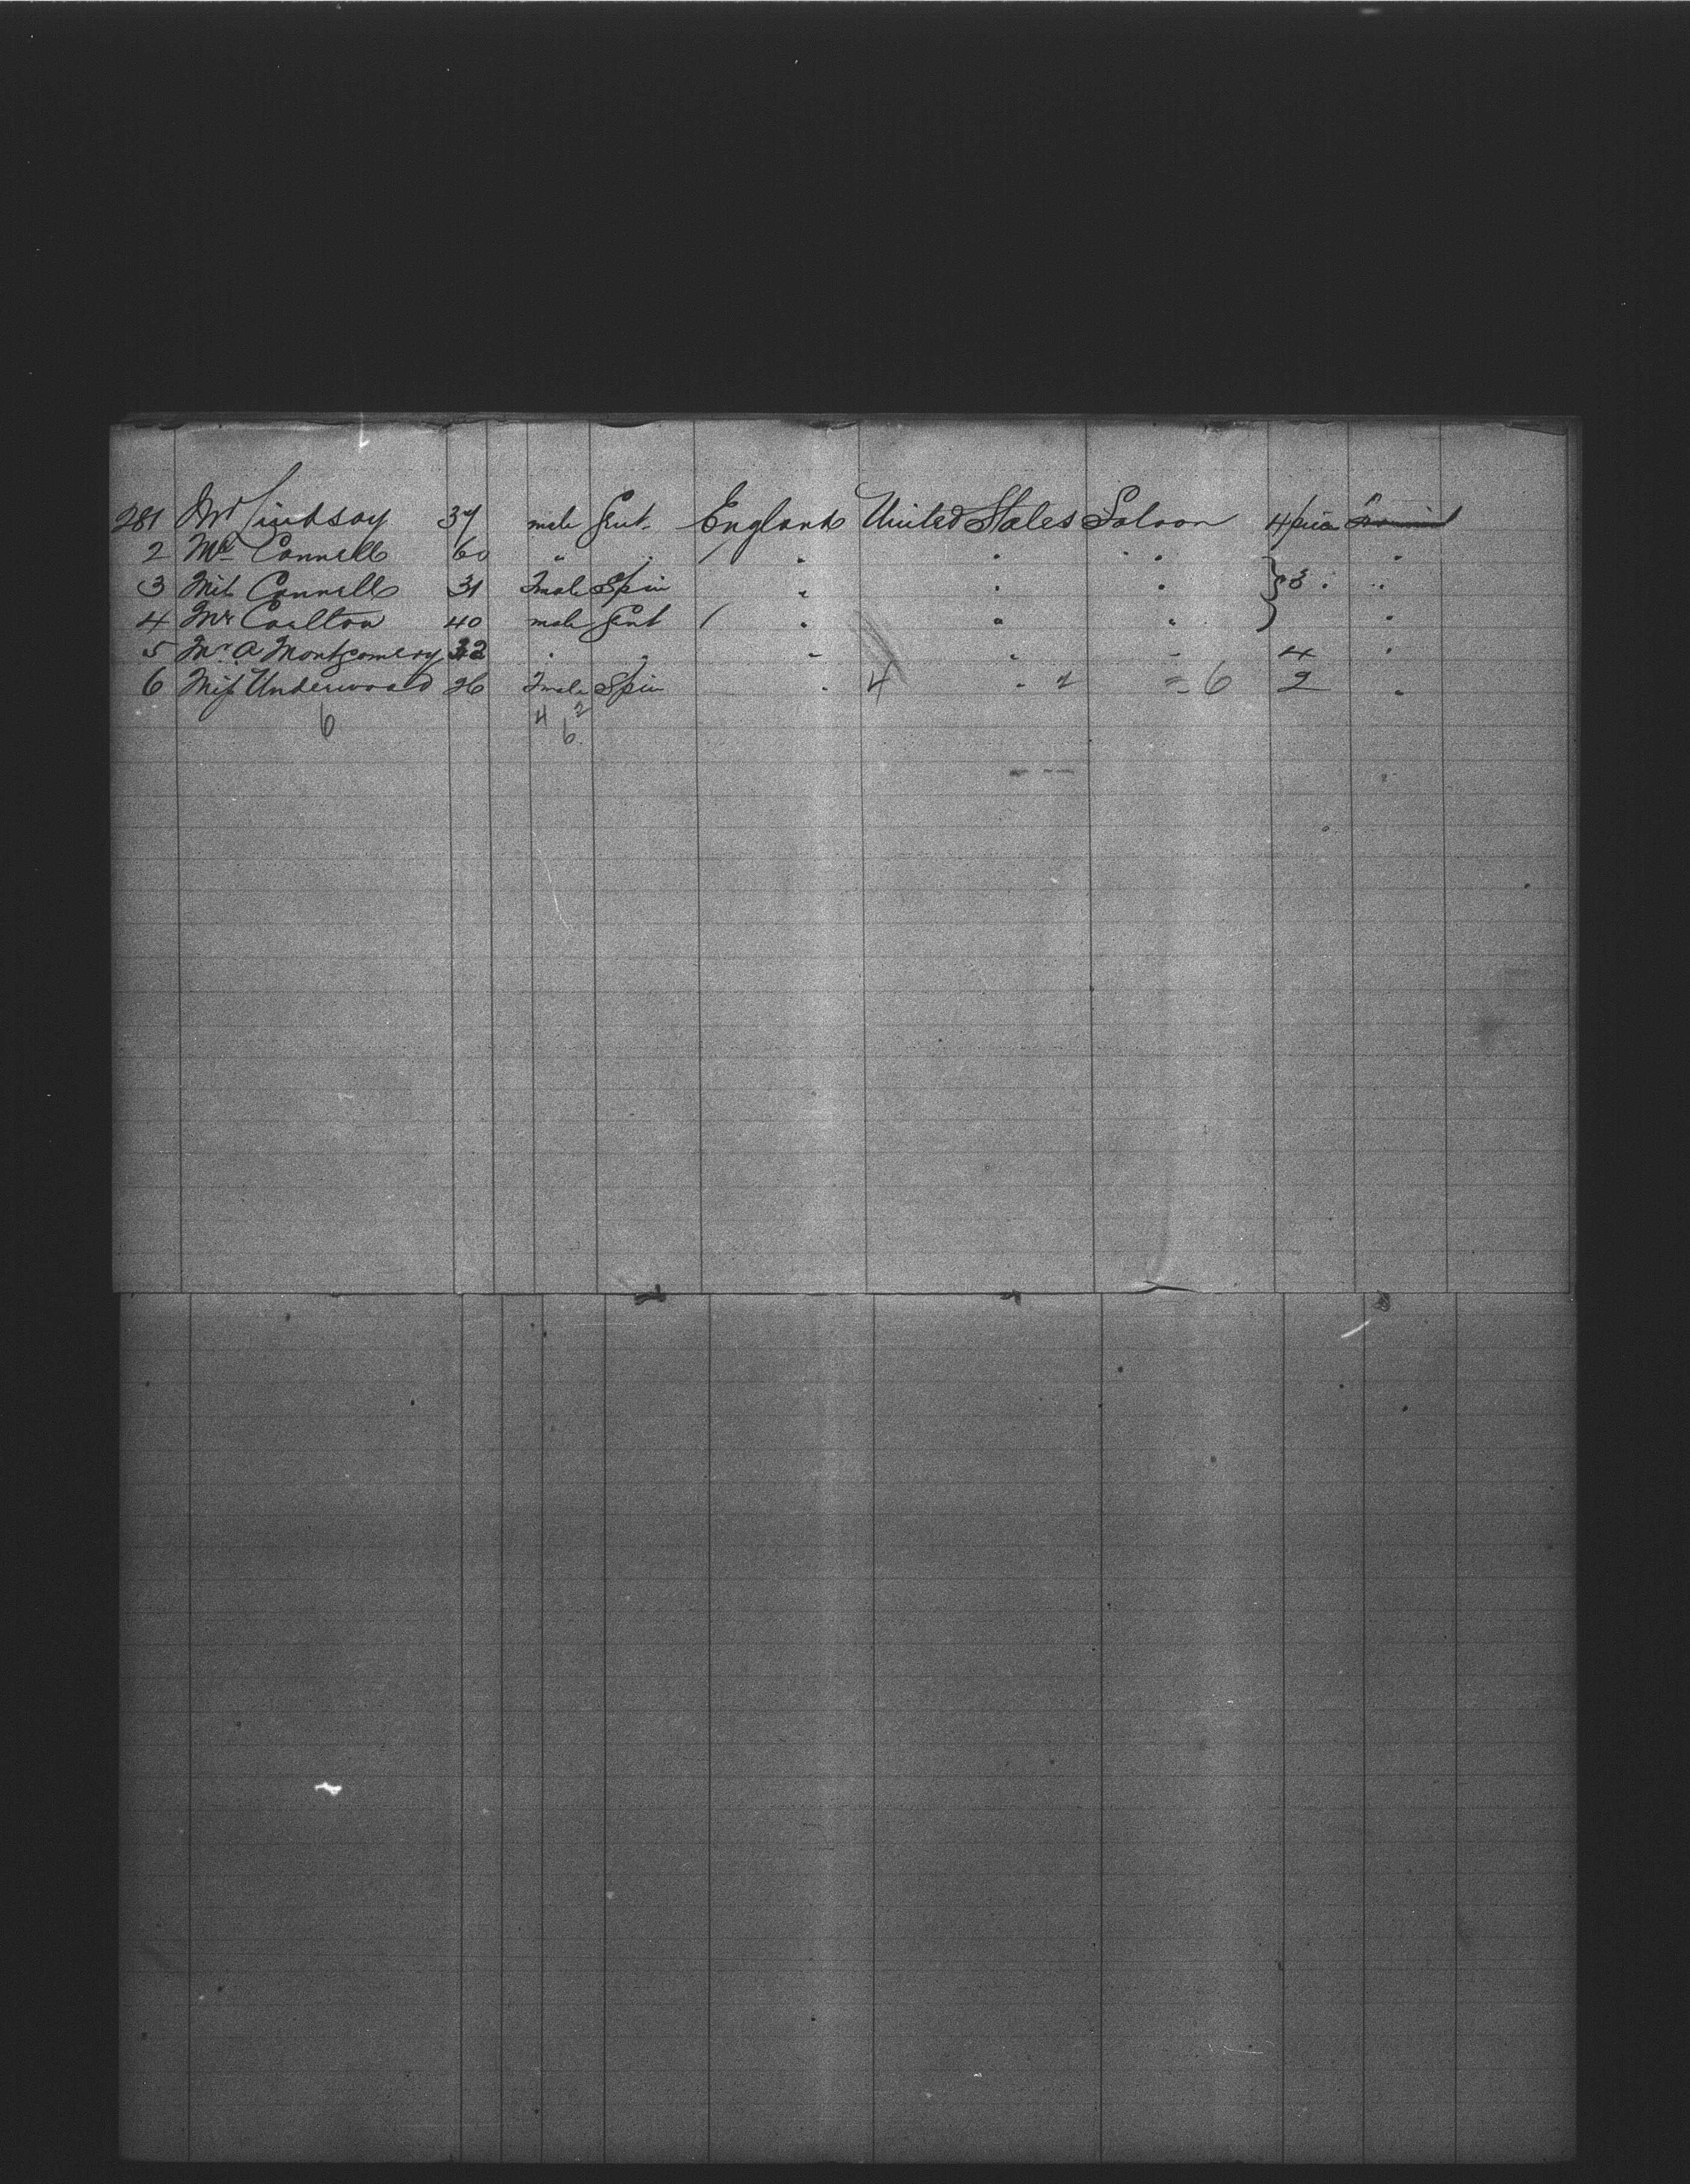 281 Mr Lindsay 37 male Gent. England United States Saloon 4 pices
2 Mr Connell 60 " " / " " " "
3 Miss Connell 31 Fmale Spin " " " } 3 " "
4 Mr Coulton 40 male Gent / " " " "
5 Mr A Montgomery 32 " " " " " 4 "
6 Miss Underwood 26 Fmale Spin " 4 " 2 = 6 2 "
6 4 2
6